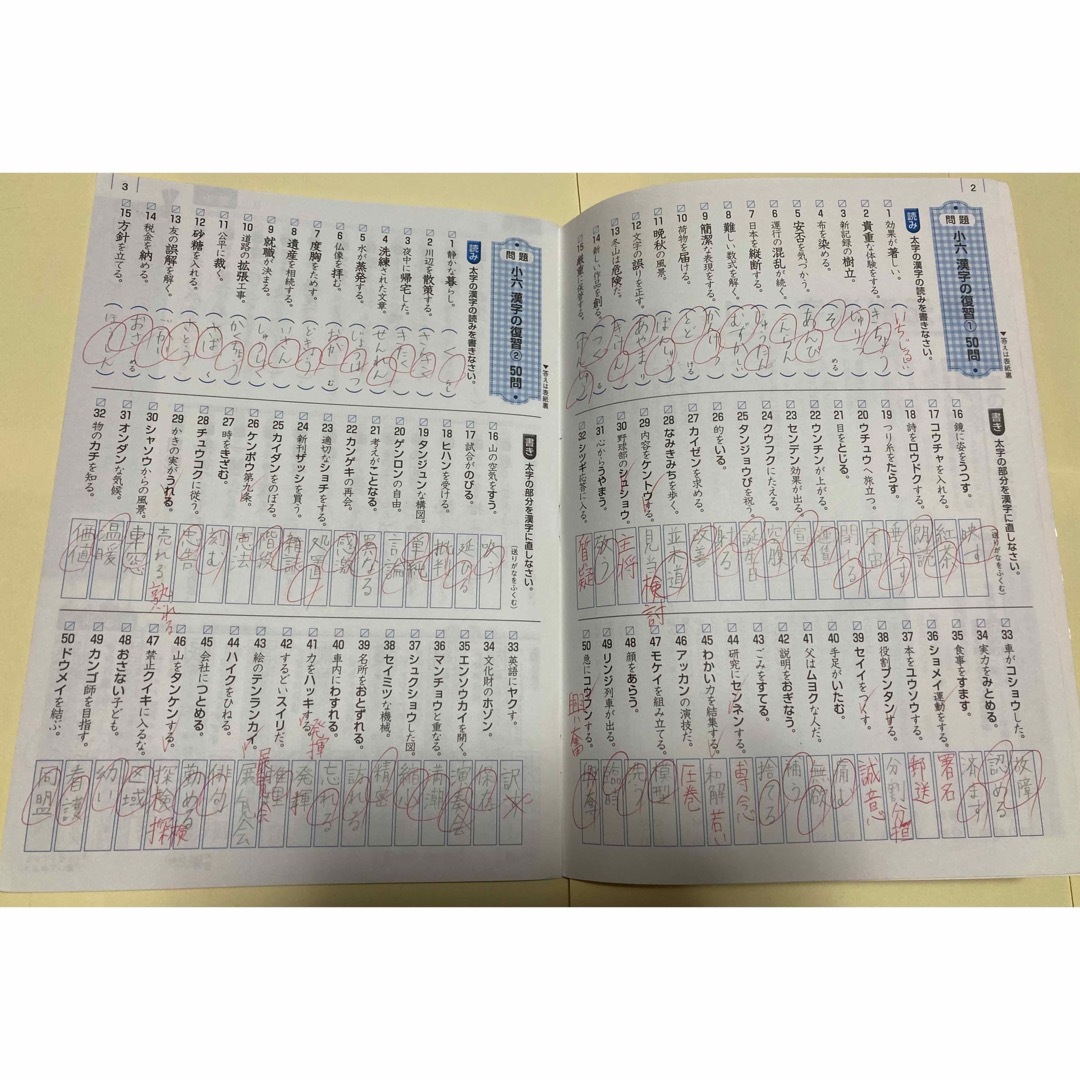 2
問題 小六 漢字の復習① 50問
▼答えは表紙裏
読み 太字の漢字の読みを書きなさい。
1 効果が著しい。
2 貴重な体験をする。
3 新記録の樹立
4 布を染める。
5 安否を気づかう。
6 運行の混乱が続く。
7 日本を縦断する。
8 難しい数式を解く。
9 簡潔な表現をする。
10 荷物を届ける。
11 晩秋の風景。
12 文字の誤りを正す。
13 冬山は危険だ。
14 新しい作品を創る。
15 厳重に保管する。
書き 太字の部分を漢字に直しなさい。
(送りがなをふくむ)
16 鏡に姿をうつす。 映す
17 コウチャを入れる。 紅茶
18 詩をロウドクする。 朗読
19 つり糸をたらす。 垂らす
20 ウチュウへ旅立つ。 宇宙
21 目をとじる。 閉じる
22 ウンチンが上がる。 運賃
23 センデン効果が出る。 宣伝
24 クウフクにたえる。 空腹
25 タンジョウびを祝う。 誕生日
26 的をいる。 射る
27 カイゼンを求める。 改善
28 なみきみちを歩く。 並木道
29 内容をケントウする。 見当 検討
30 野球部のシュショウ。 主将
31 心からうやまう。 敬う
32 シツギ応答に入る。 質疑
33 車がコショウした。 故障
34 実力をみとめる。 認める
35 食事をすます。 済ます
36 ショメイ運動をする。 署名
37 本をユウソウする。 郵送
38 役割ブンタンする。 分割 分担
39 セイイをつくす。 誠意
40 手足がいたむ。 痛む
41 父はムヨクな人だ。 無欲
42 説明をおぎなう。 補う
43 ごみをすてる。 捨てる
44 研究にセンネンする。 専念
45 わかい力を結集する。 和解 若い
46 アッカンの演技だ。 圧巻
47 モケイを組み立てる。 模型
48 顔をあらう。 洗う
49 リンジ列車が出る。 臨時
50 急にコウフンする。 興奮
3
問題 小六 漢字の復習② 50問
▼答えは表紙裏
読み 太字の漢字の読みを書きなさい。
1 静かな暮らし。
2 川辺を散策する。
3 夜中に帰宅した。
4 洗練された文章。
5 水が蒸発する。
6 仏像を拝む。
7 度胸をためす。
8 遺産を相続する。
9 就職が決まる。
10 道路の拡張工事。
11 公平に裁く。
12 砂糖を入れる。
13 友の誤解を解く。
14 税金を納める。
15 方針を立てる。
書き 太字の部分を漢字に直しなさい。
(送りがなをふくむ)
16 山の空気をすう。 吸う
17 試合がのびる。 延びる
18 ヒハンを受ける。 批判
19 タンジュンな構図。 単純
20 ゲンロンの自由。 言論
21 考えがことなる。 異なる
22 カンゲキの再会。 感激
23 適切なショチをする。 処置
24 新刊ザッシを買う。 雑誌
25 カイダンをのぼる。 階段
26 ケンポウ第九条。 憲法
27 時をきざむ。 刻む
28 チュウコクに従う。 忠告
29 かきの実がうれる。 売れる 熟れる
30 シャソウからの風景。 車窓
31 オンダンな気候。 温暖
32 物のカチを知る。 価値
33 英語にヤクす。 訳
34 文化財のホゾン。 保存
35 エンソウカイを開く。 演奏会
36 マンチョウと重なる。 満潮
37 シュクショウした図。 縮小
38 セイミツな機械。 精密
39 名所をおとずれる。 訪れる
40 車内にわすれる。 忘れる
41 力をハッキする。 発揮 発揮
42 するどいスイリだ。 推理
43 絵のテンランカイ。 展覧会
44 ハイクをひねる。 俳句
45 会社につとめる。 勤める
46 山をタンケンする。 探検 探検
47 禁止クイキに入るな。 区域
48 おさない子ども。 幼い
49 カンゴ師を目指す。 看護
50 ドウメイを結ぶ。 同盟